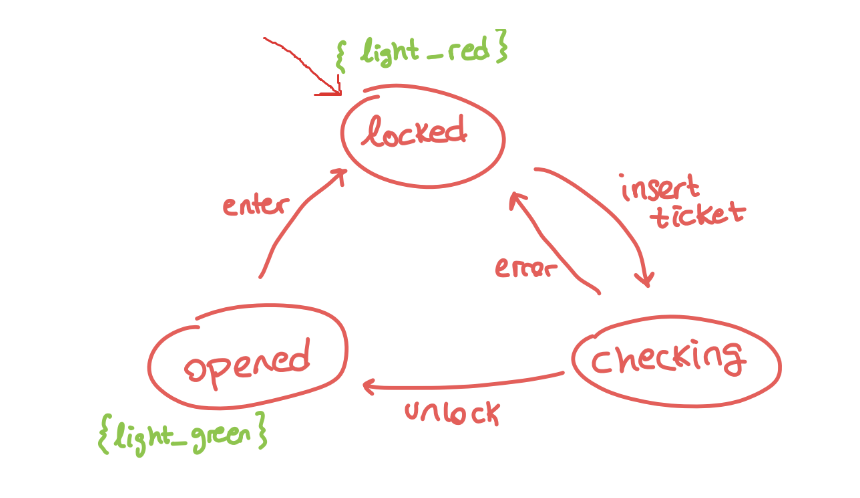 { light_red }
locked
enter
insert
ticket
error
opened
checking
unlock
{light_green}